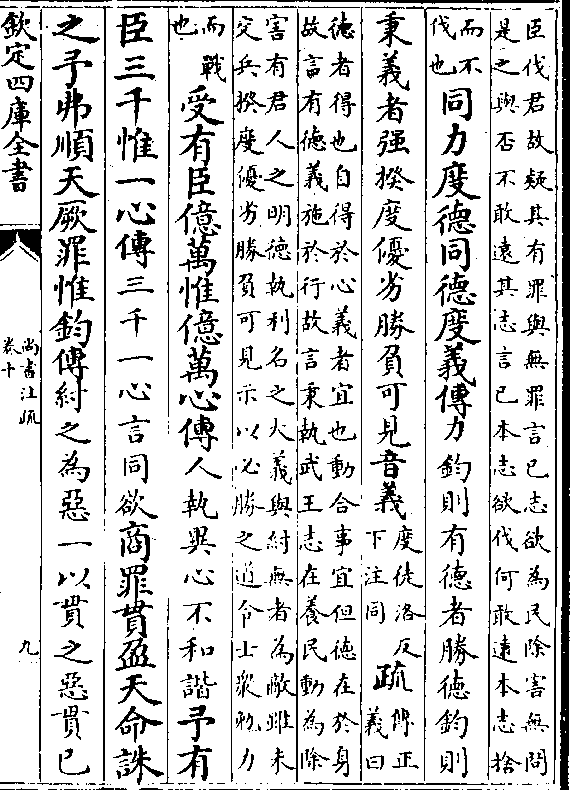 臣伐君故疑其有罪與無罪言已志欲為民除害無問
是之與否不敢遠其志言已本志欲伐何敢遠本志捨
而不
伐也
同力度德同德度義傳力鈞則有德者勝德鈞則
秉義者强揆度優劣勝負可見音義
度徒洛反
下注同
疏
傳正
義曰
德者得也自得於心義者宜也動合事宜但德在於身
故言有德義施於行故言秉執武王志在養民動為除
害有君人之明德執利名之大義與紂無者為敵雖未
交兵揆度優劣勝負可見示以必勝之道令士衆勉力
而戰
也
受有臣億萬惟億萬心傳人執異心不和諧予有
臣三千惟一心傳三千一心言同欲商罪貫盈天命誅
之予弗順天厥罪惟鈞傳紂之為惡一以貫之惡貫已
欽定四庫全書
尚書注疏
卷十
九